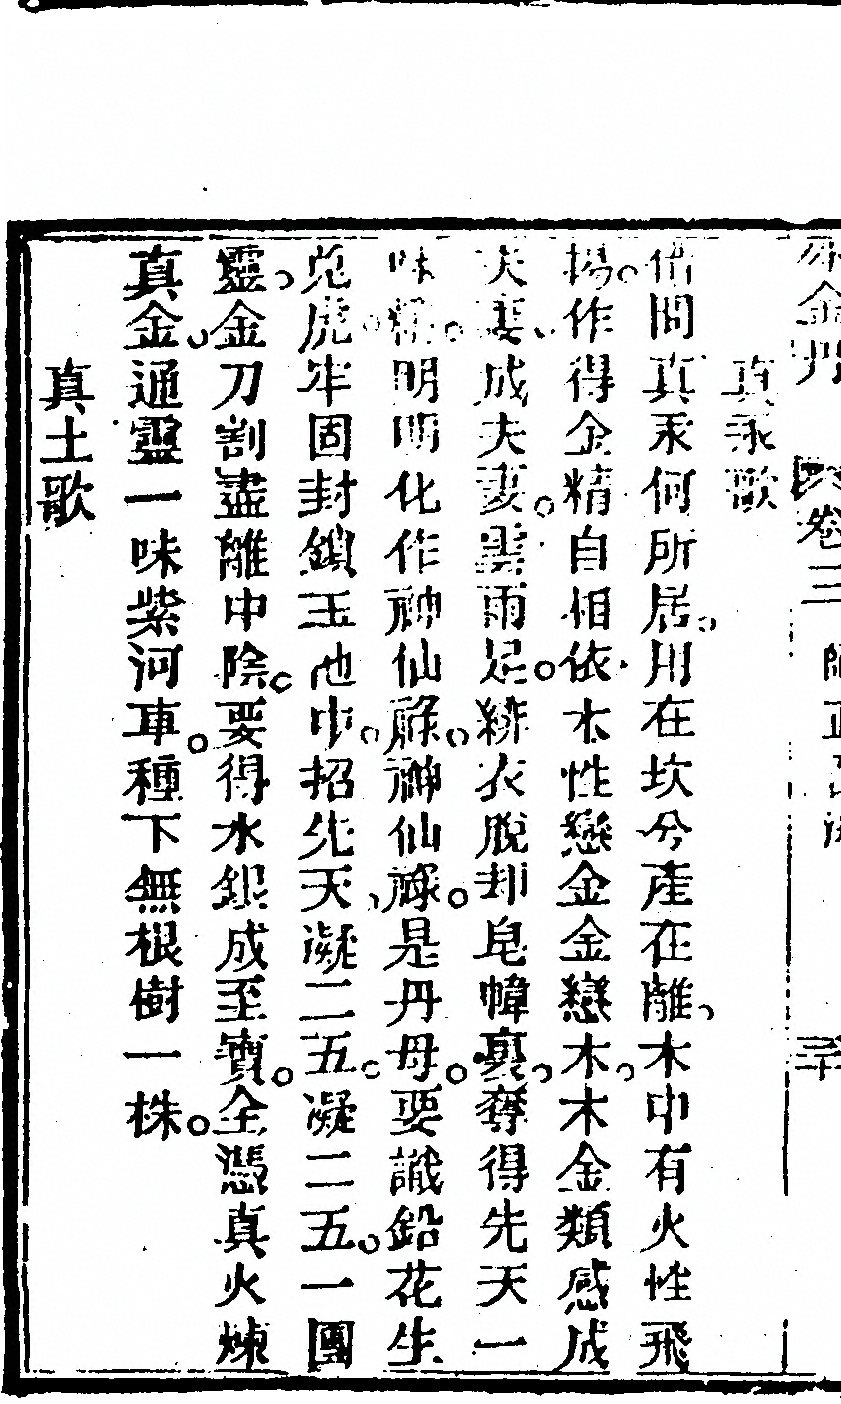 金丹 卷三 三十
真汞歌
借問真汞何所居。用在坎兮產在離。木中有火性飛
揚。作得金精自相依。木性戀金金戀木。木金類感成
夫妻、成夫妻。雲雨足。緋衣脫却皂幃裏。奪得先天一
味物。明明化作神仙祿。神仙祿。是丹母。要識鉛花生
兔虎。牢固封鎖玉池中。招先天、凝二五。凝二五。一團
靈。金刀割盡離中陰。要得水銀成至寶。全憑真火煉
真金。真金通靈一味紫河車。種下無根樹一株。
真土歌